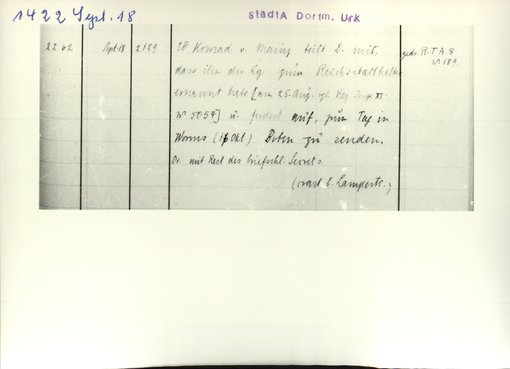 1422 Sept. 18
StadtA Dortm. Urk
2262 Sept 18 2189 EB Konrad v. Mainz teilt D. mit, gedr. R.T.A. 8
dass ihn der Kg zum Reichsstatthalter No 189.
ernannt habe [am 25. Aug. vgl Reg. Imp. XI.
No 5054] u. fordert auf, zum Tag in
Worms (Okt) Boten zu senden.
Or. mit Rest des briefschl. Secrets.